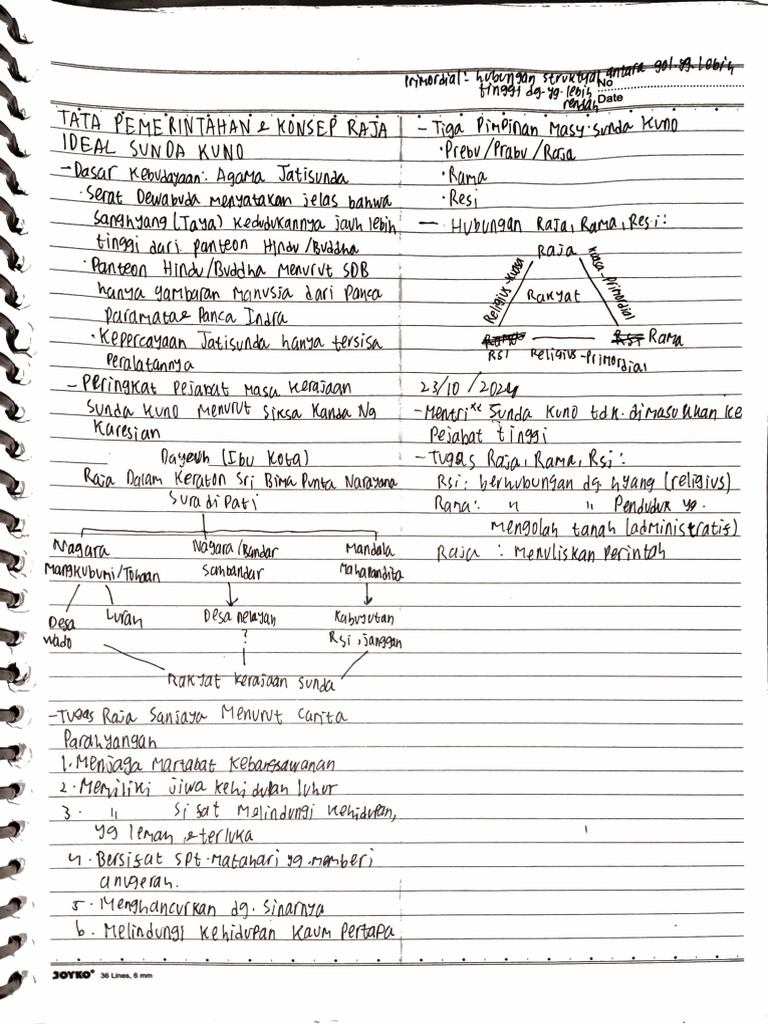 Primordial = hubungan struktural antara gol. yg. lebih
tinggi dg. yg. lebih
rendah
No
Date
TATA PEMERINTAHAN & KONSEP RAJA
IDEAL SUNDA KUNO
- Dasar Kebudayaan: Agama Jatisunda
• Serat Dewabuda menyatakan jelas bahwa
Sanghyang (Taya) Kedudukannya jauh lebih
tinggi dari panteon Hindu/Buddha
• Panteon Hindu/Buddha menurut SDB
hanya gambaran manusia dari Panca
paramata & Panca Indra
• Kepercayaan Jatisunda hanya tersisa
peralatannya
- Peringkat Pejabat masa kerajaan
Sunda Kuno Menurut Siksa Kanda Ng
Karesian
Dayeuh (Ibu Kota)
Raja Dalam Keraton Sri Bima Punta Narayana
Suradipati
Nagara
Mangkubumi/Tohaan
Nagara/Bandar
Sahbandar
Mandala
Mahapandita
Desa
Wado
Lurah
Desa nelayan
?
Kabuyutan
Rsi, janggan
Rakyat kerajaan sunda
- Tugas Raja Sanjaya Menurut Carita
Parahyangan
1. Menjaga Martabat Kebangsawanan
2. Memiliki jiwa kehidupan luhur
3. " Sifat Melindungi kehidupan,
yg lemah & terluka
4. Bersifat spt. matahari yg. memberi
anugerah.
5. Menghancurkan dg. sinarnya
6. Melindungi kehidupan kaum pertapa
- Tiga Pimpinan Masy. sunda kuno
• Prebu/Prabu/Raja
• Rama
• Resi
- Hubungan Raja, Rama, Resi:
Raja
Religius-kuasa
Kuasa-Primordial
Rakyat
Rsi
Religius-Primordial
Rama
23/10/2024
- Mentri" Sunda Kuno tdk. dimasukkan ke
Pejabat tinggi
- Tugas Raja, Rama, Rsi:
Rsi: berhubungan dg hyang (religius)
Rama: " " Penduduk yg.
mengolah tanah (administratif)
Raja : Menuliskan Perintah
JOYKO 36 Lines, 6 mm